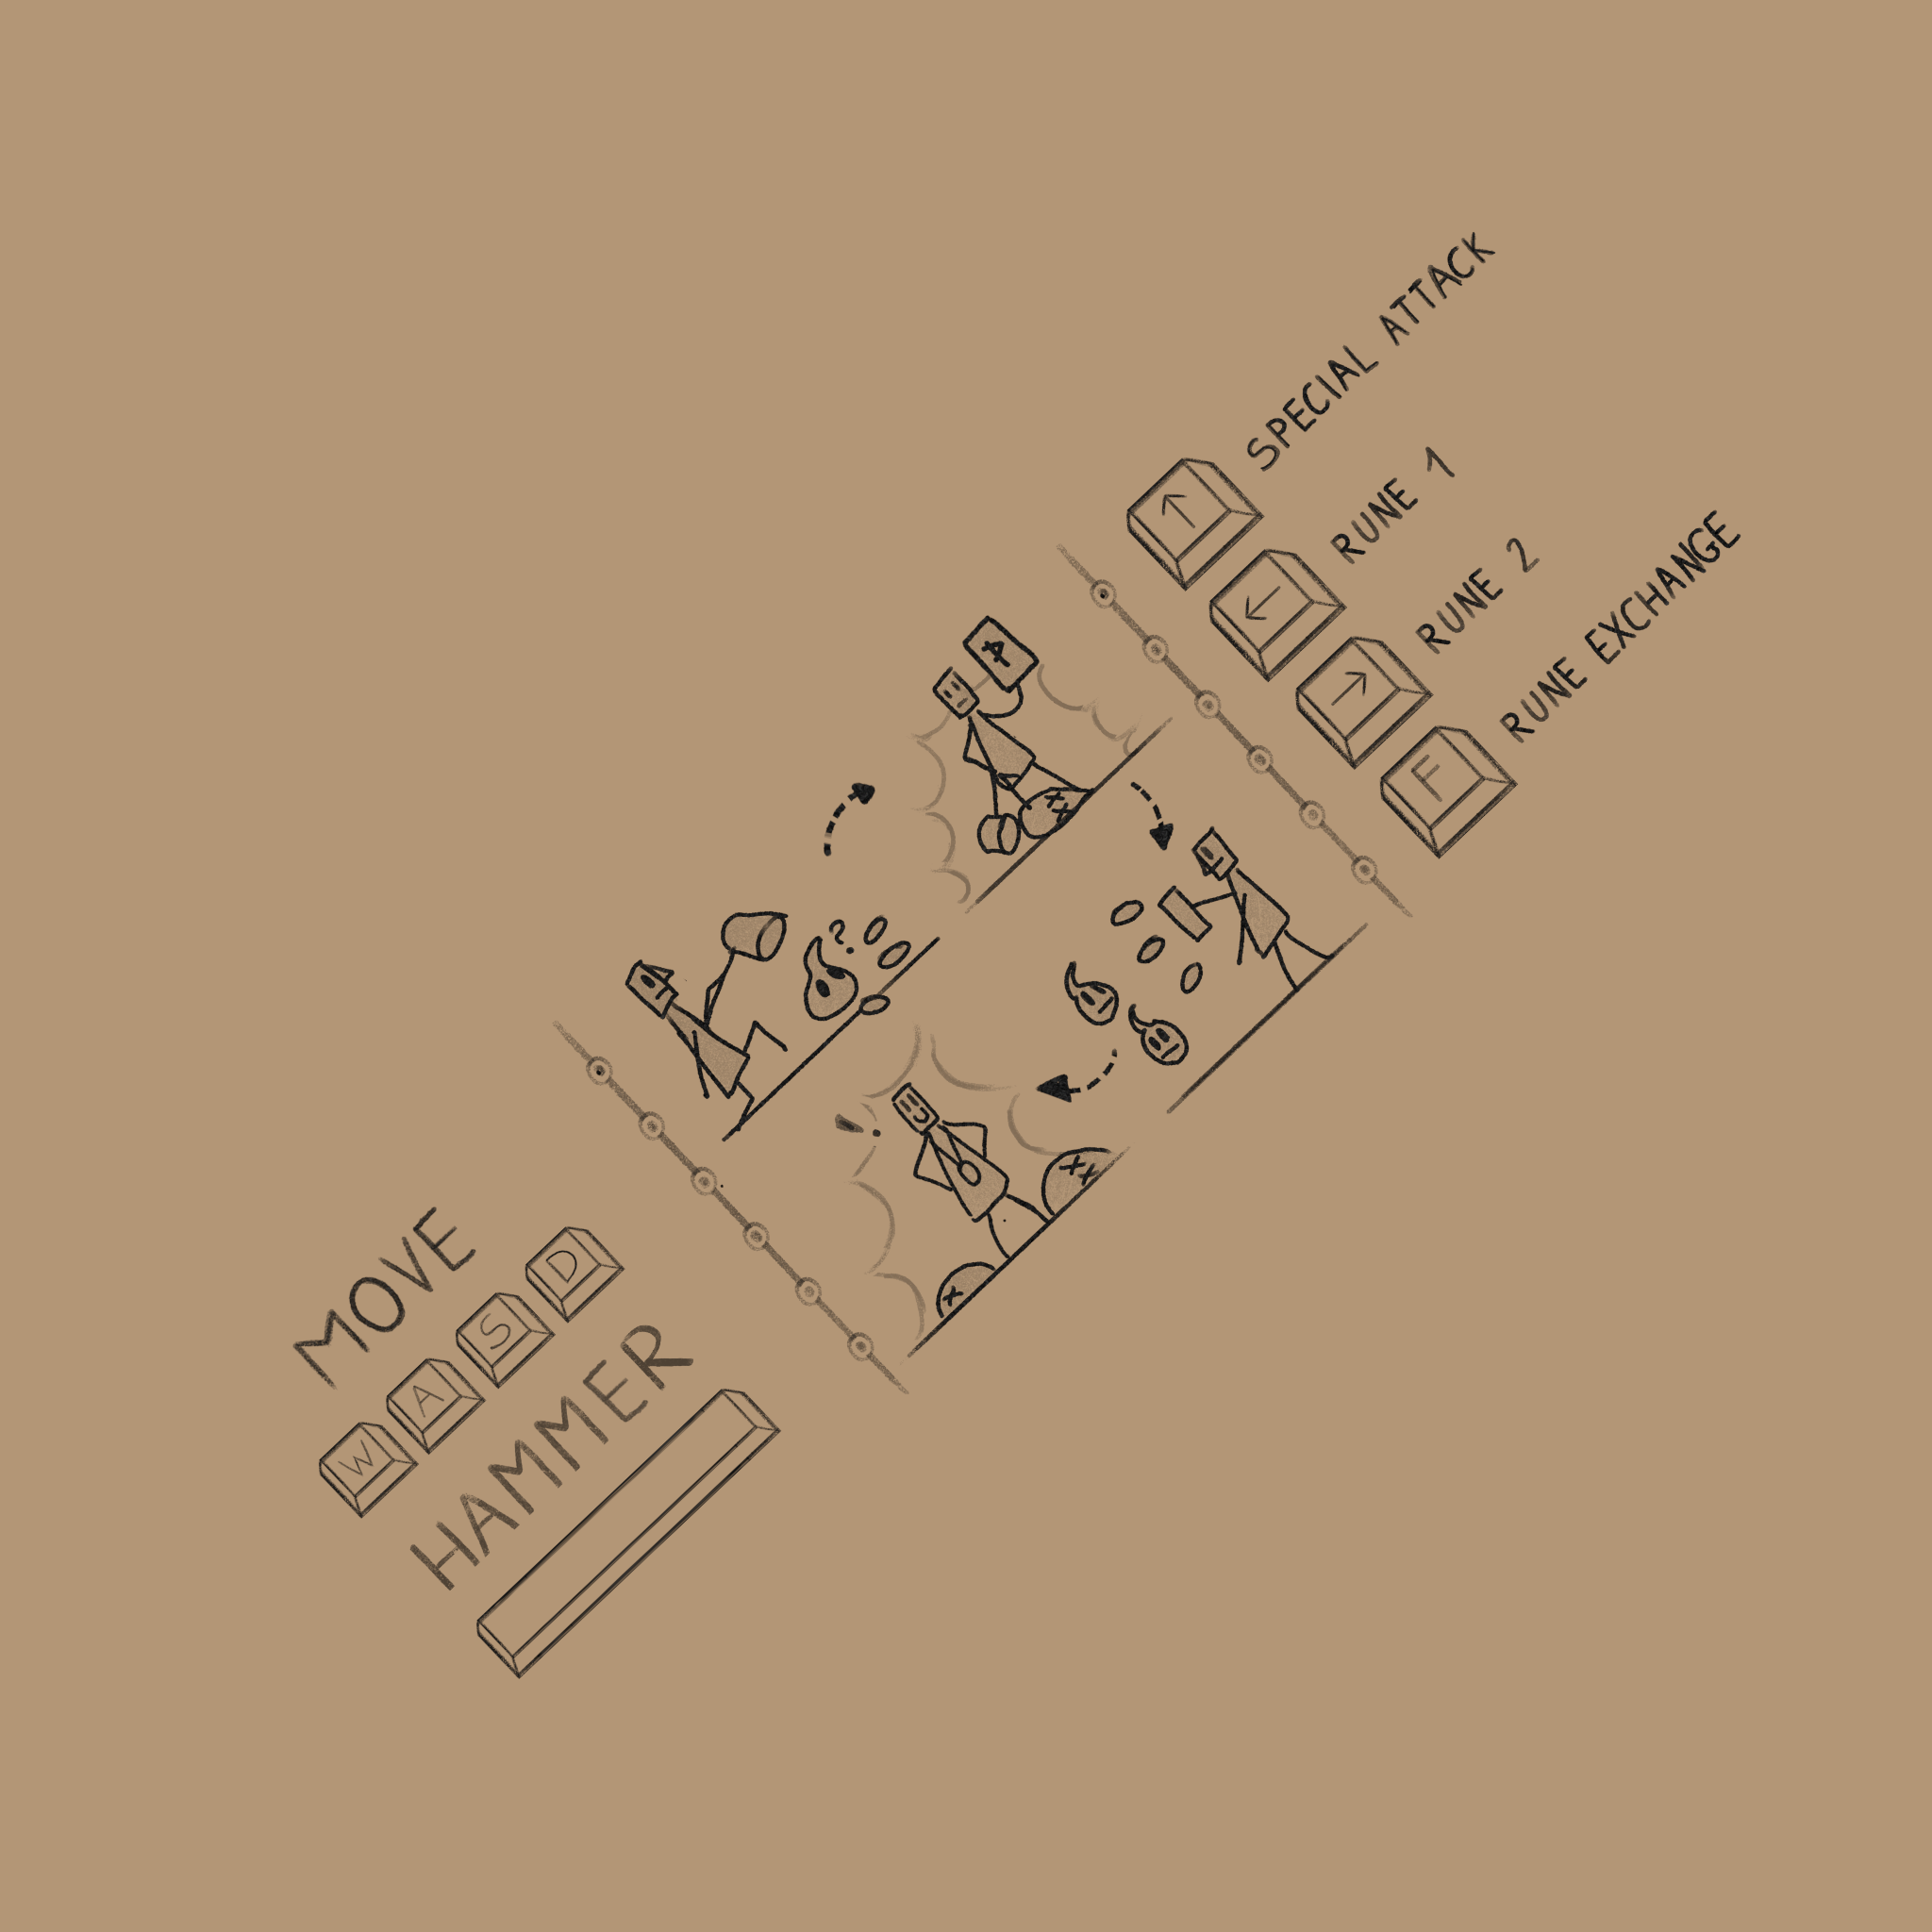 MOVE
W A S D
HAMMER
↑ SPECIAL ATTACK
← RUNE 1
→ RUNE 2
F RUNE EXCHANGE
?
!